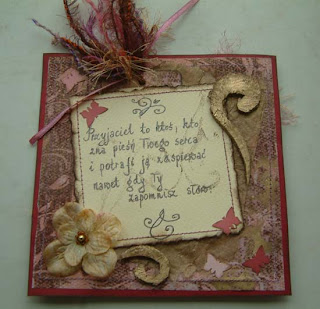 Przyjaciel to ktoś, kto
zna pieśń Twego serca
i potrafi ją zaśpiewać
nawet gdy Ty
zapomnisz słów